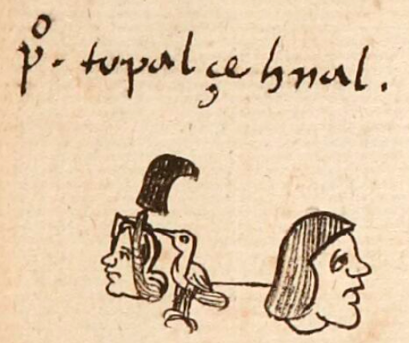 pº. topal çe hual.